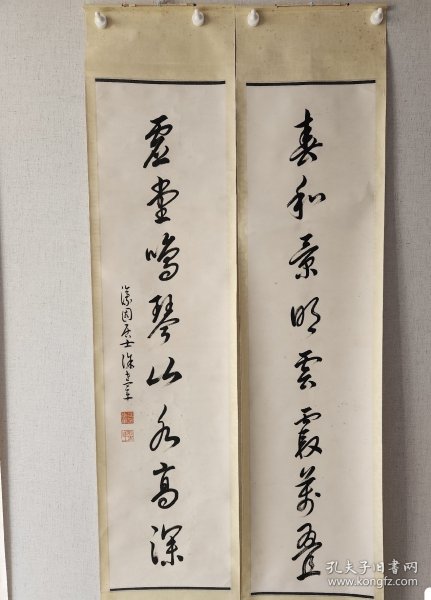 春和景明雲霞萬疊
虛堂鳴琴山水高深
居士
孔夫子旧书网
www.kongfz.com